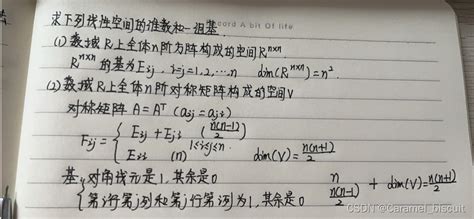 求下列线性空间的维数和一组基
cord A bit Of life
(1) 数域R上全体n阶方阵构成的空间 Rⁿˣⁿ
Rⁿˣⁿ的基为Eij, i=j=1,2,…,n dim(Rⁿˣⁿ)=n².
(2) 数域R上全体n阶对称矩阵构成的空间V
对称矩阵 A=Aᵀ (aij=aji)
Fij = { Eij + Eji (n(n-1)/2) 1≤i≤j≤n
Eii (n) dim(V)=n(n+1)/2
基 { 对角线元是1,其余是0 n
第i行第j列和第j行第i列为1,其余是0 n(n-1)/2 + dim(V)=n(n+1)/2
CSDN @Caramel_biscuit